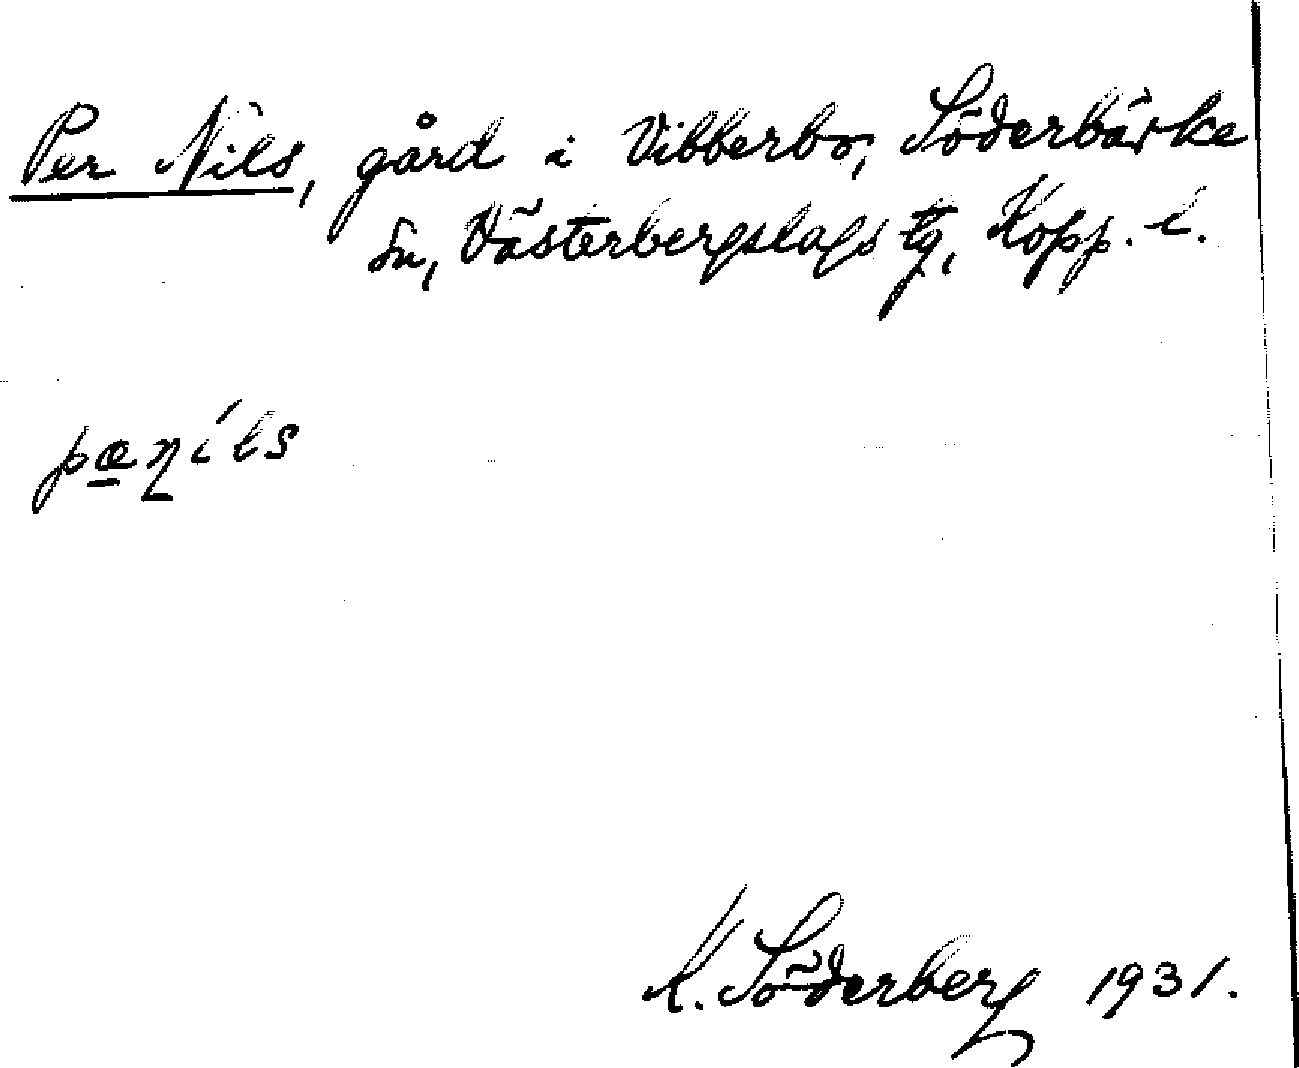 Per Nils, gård i Vibberbo, Söderbärke
sn, Västerbergslags tg, Kopp. l.
pæníls
K. Söderberg 1931.